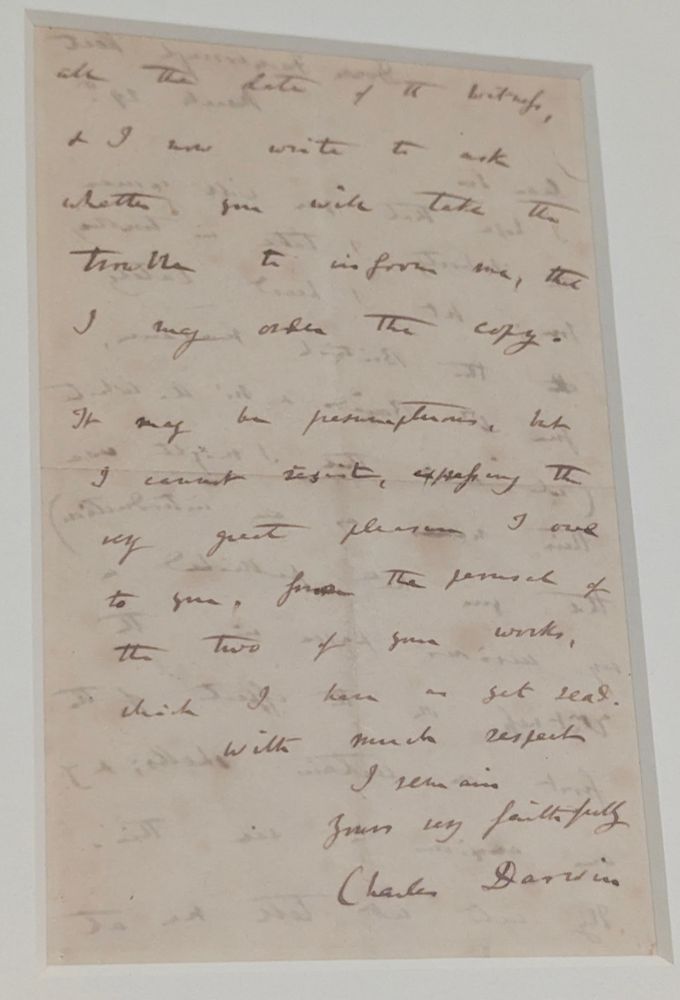 all the date of the Witness,
& I now write to ask
whether you will take the
trouble to inform me, that
I may order the copy.
It may be presumptuous, but
I cannot resist, expressing the
very great pleasure I owe
to you, from the perusal of
the two of your works,
which I have as yet read.
with much respect
I remain
Yours very faithfully
Charles Darwin